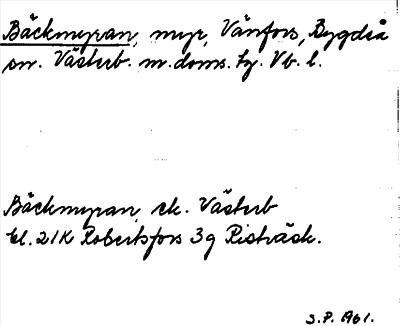 Bäckmyran, myr, Vänfors, Bygdeå
sn. Västerb. m. doms. tg. Vb. l.
Bäckmyran, ek. Västerb
bl. 21K Robertsfors 3g Risträsk.
S.P. 1961.